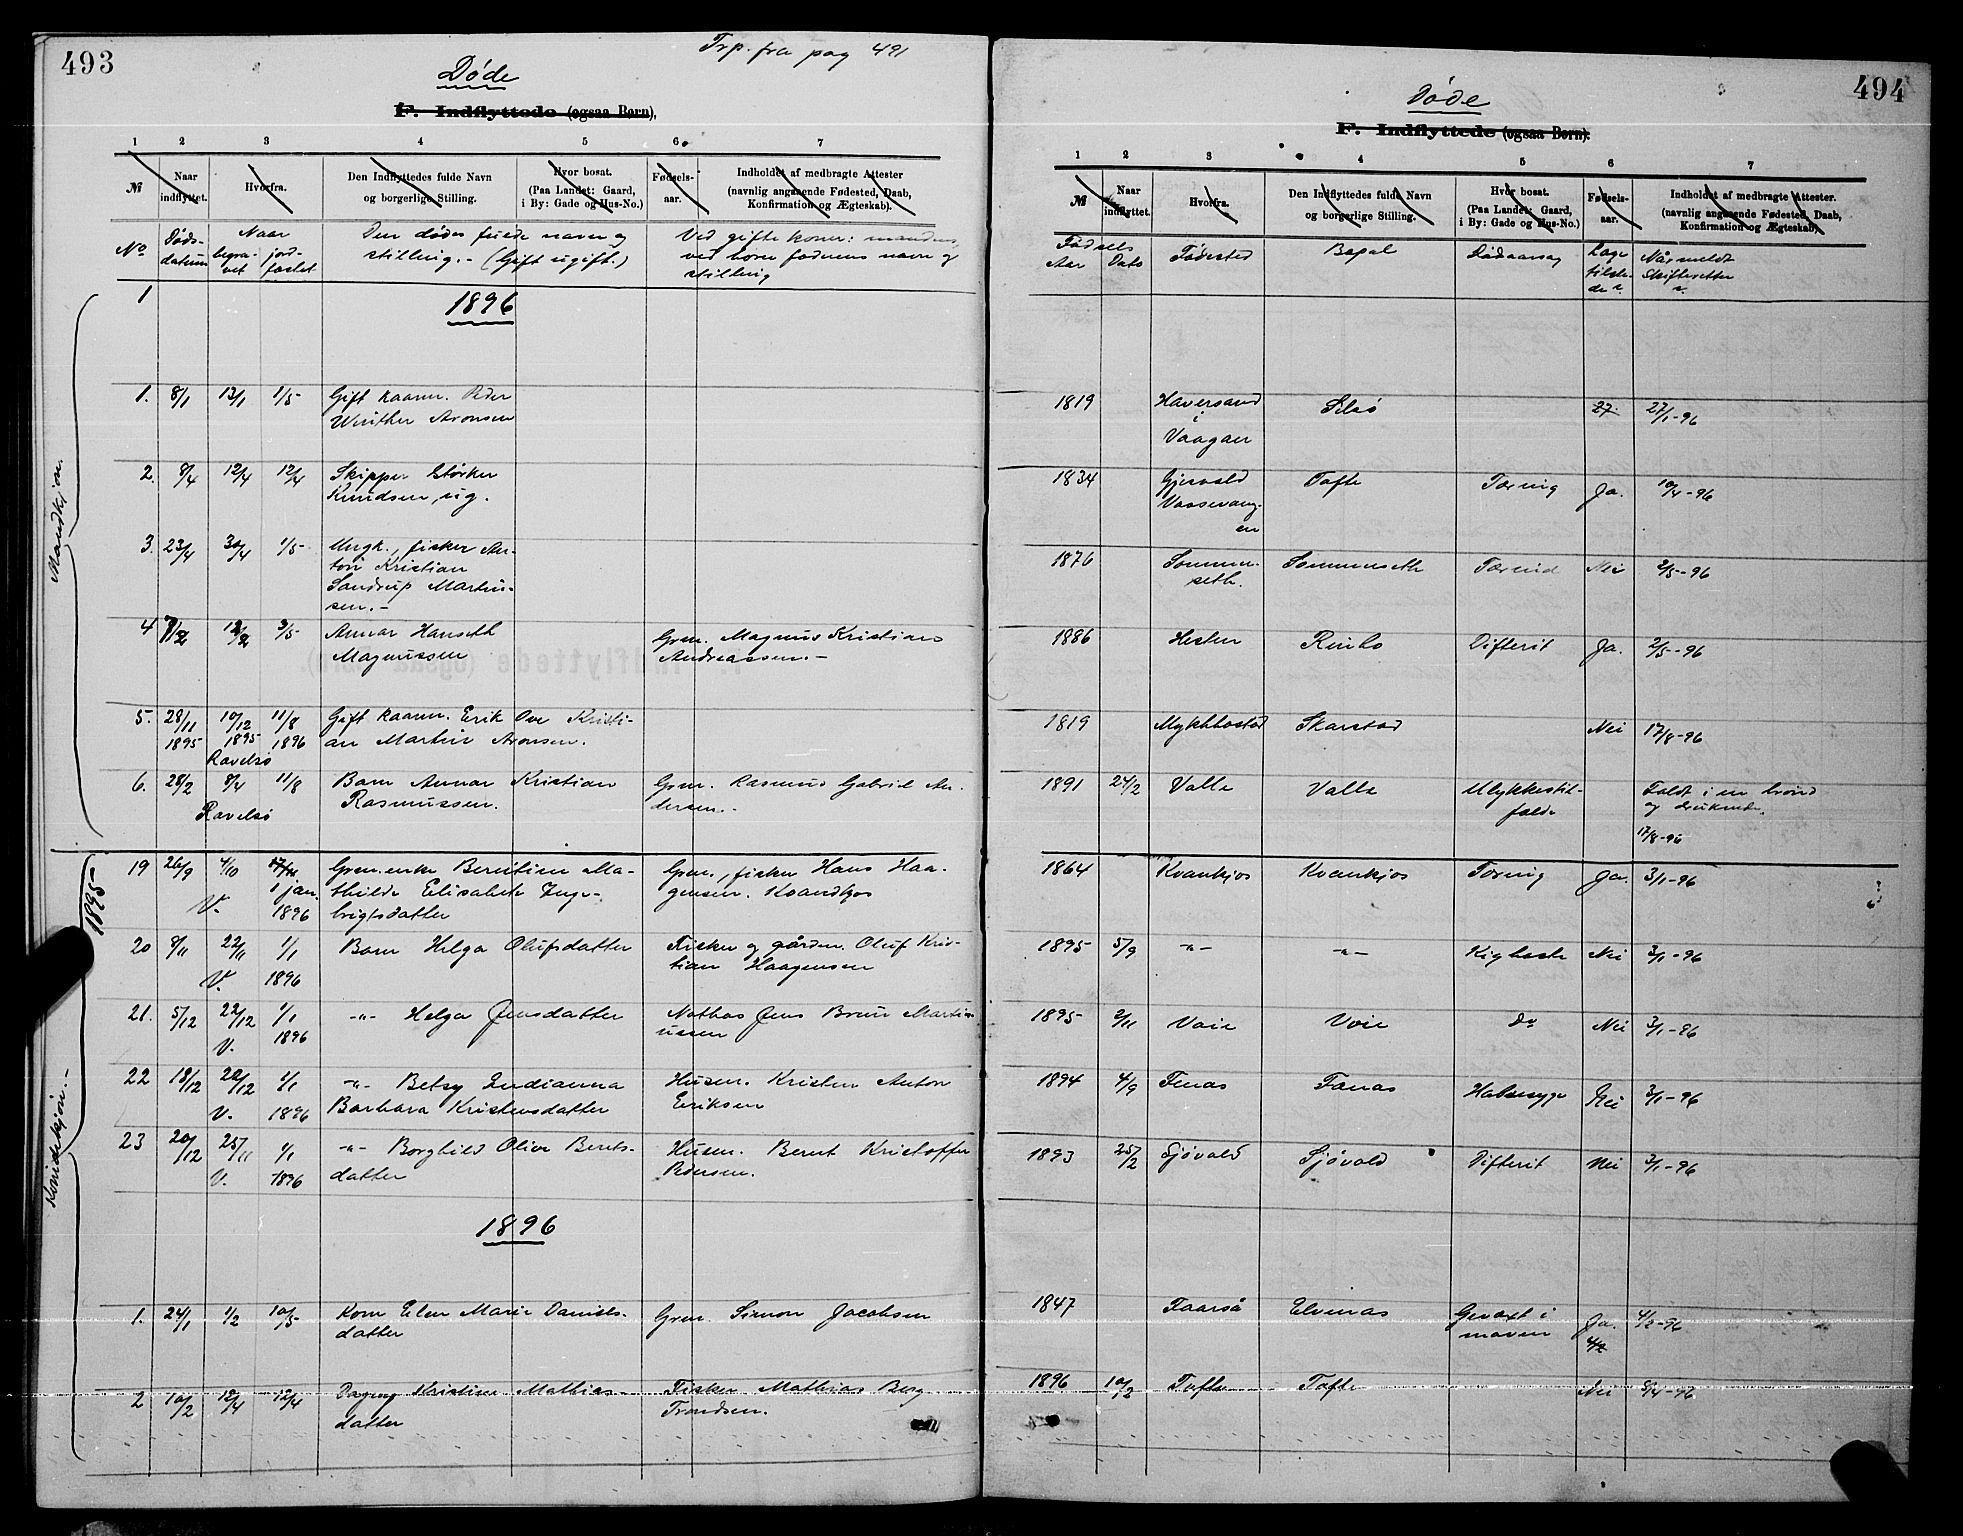 493
Trp. fra pag 491
Døde
F. Indflyttede (ogsaa Børn),
1 2 3 4 5 6 7
№ Naar indflyttet. Hvorfra. Den Indflyttedes fulde Navn og borgerlige Stilling. Hvor bosat. (Paa Landet: Gaard, i By: Gade og Hus-No.) Fødsels-aar. Indholdet af medbragte Attester (navnlig angaaende Fødested, Daab, Konfirmation og Ægteskab).
No Døds-datum Naar begra-vet jord-fæstet Den dødes fulde navn og stilling. - (Gift ugift.) Ved gifte koner: mandens, ved børn faderens navn og stilling
Mandkjøn.
1
1896
1. 8/1 13/1 1/5 Gift kaarm. Peder
Winther Aronsen
2. 8/4 12/4 12/4 Skipper Størker
Knudsen, ug.
3. 23/4 30/4 1/5 Ungk., fisker An-
ton Kristian
Sandrup Martin-
sen. -
4 7/2 12/2 3/5 Annar Hanseth Grm. Magnus Kristian
Magnussen Andreassen. -
5. 28/11 10/12 11/8 Gift kaarm. Erik Ove Kristi-
1895 1895 1896 an Martin Aronsen.
Ravelsø
6. 28/2 8/4 11/8 Barn Annar Kristian Grm. Rasmus Gabriel An-
Ravelsø Rasmussen. dersen. -
1895
Kvindekjøn. -
19 26/9 4/10 17/11 Grm.enke Berntine Ma- Grm., fisker Hans Haa-
V. 1 jan. 1896 thilde Elisabete Inge- gensen. Kvandkjos
brigtsdatter
20 8/11 22/11 1/1 Barn Helga Olufsdatter Fisker og gårdm. Oluf Kris-
V. 1896 tian Haagensen
21. 5/12 22/12 1/1 -"- Helga Jensdatter Nothas Jens Breni Martin
V. 1896 ussen
22 18/12 22/12 1/1 -"- Betsy Indianna Husm. Kristen Anton
V. 1896 Barbara Kristensdatter Eriksen
23 20/12 25/11 1/1 -"- Borghild Olive Bernts- Husm. Bernt Kristoffer
V. 1896 datter Pedersen.
1896
1. 24/1 1/2 10/5 Kone Elen Marie Daniels- Grm. Simon Jacobsen
datter
2 10/2 12/4 12/4 Dagny Kristine Mathias- Fisker Mathias Berg
datter Trondsen.
494
Døde
F. Indflyttede (ogsaa Børn).
1 2 3 4 5 6 7
№ Naar indflyttet. Hvorfra. Den Indflyttedes fulde Navn og borgerlige Stilling. Hvor bosat. (Paa Landet: Gaard, i By: Gade og Hus-No.) Fødsels-aar. Indholdet af medbragte Attester. (navnlig angaaende Fødested, Daab, Konfirmation og Ægteskab).
Fødsels Aar Dato Fødested Bopæl Dødsaarsag Læge tilste-de? Når meldt Skifteretten?
1819 Haversand Silsø 27 27/1-96
i
Vaagan
1834 Gjervald Tofte Tæring Ja. 10/4-96
Vossevang-
en
1876 Sommer- Sommerseth Tæring Nei 2/5-96
seth.
1886 Hesten Rinbø Difterit Ja. 2/5-96
1819 Mykkbostad Skarstad Nei 17/8-96
1891 24/2 Valle Valle Ulykkestil- Faldt i en brønd
fælde og druknede.
17/8-96
1864 Kvankjos Kvankjos Tæring Ja. 3/1-96
1895 5/9 -"- -"- Kighoste Nei 3/1-96
1895 2/11 Voie Voie do Nei 3/1-96
1894 4/9 Fenas Fænas Halssyge Nei 3/1-96
1893 25/2 Sjøvold Sjøvold Difterit Nei 3/1-96
1847 Taarsø Elvenas Gevæxt i Ja. 4/2-96
maven 4/2
1896 10/2 Tofte Tofte Nei 8/4-96